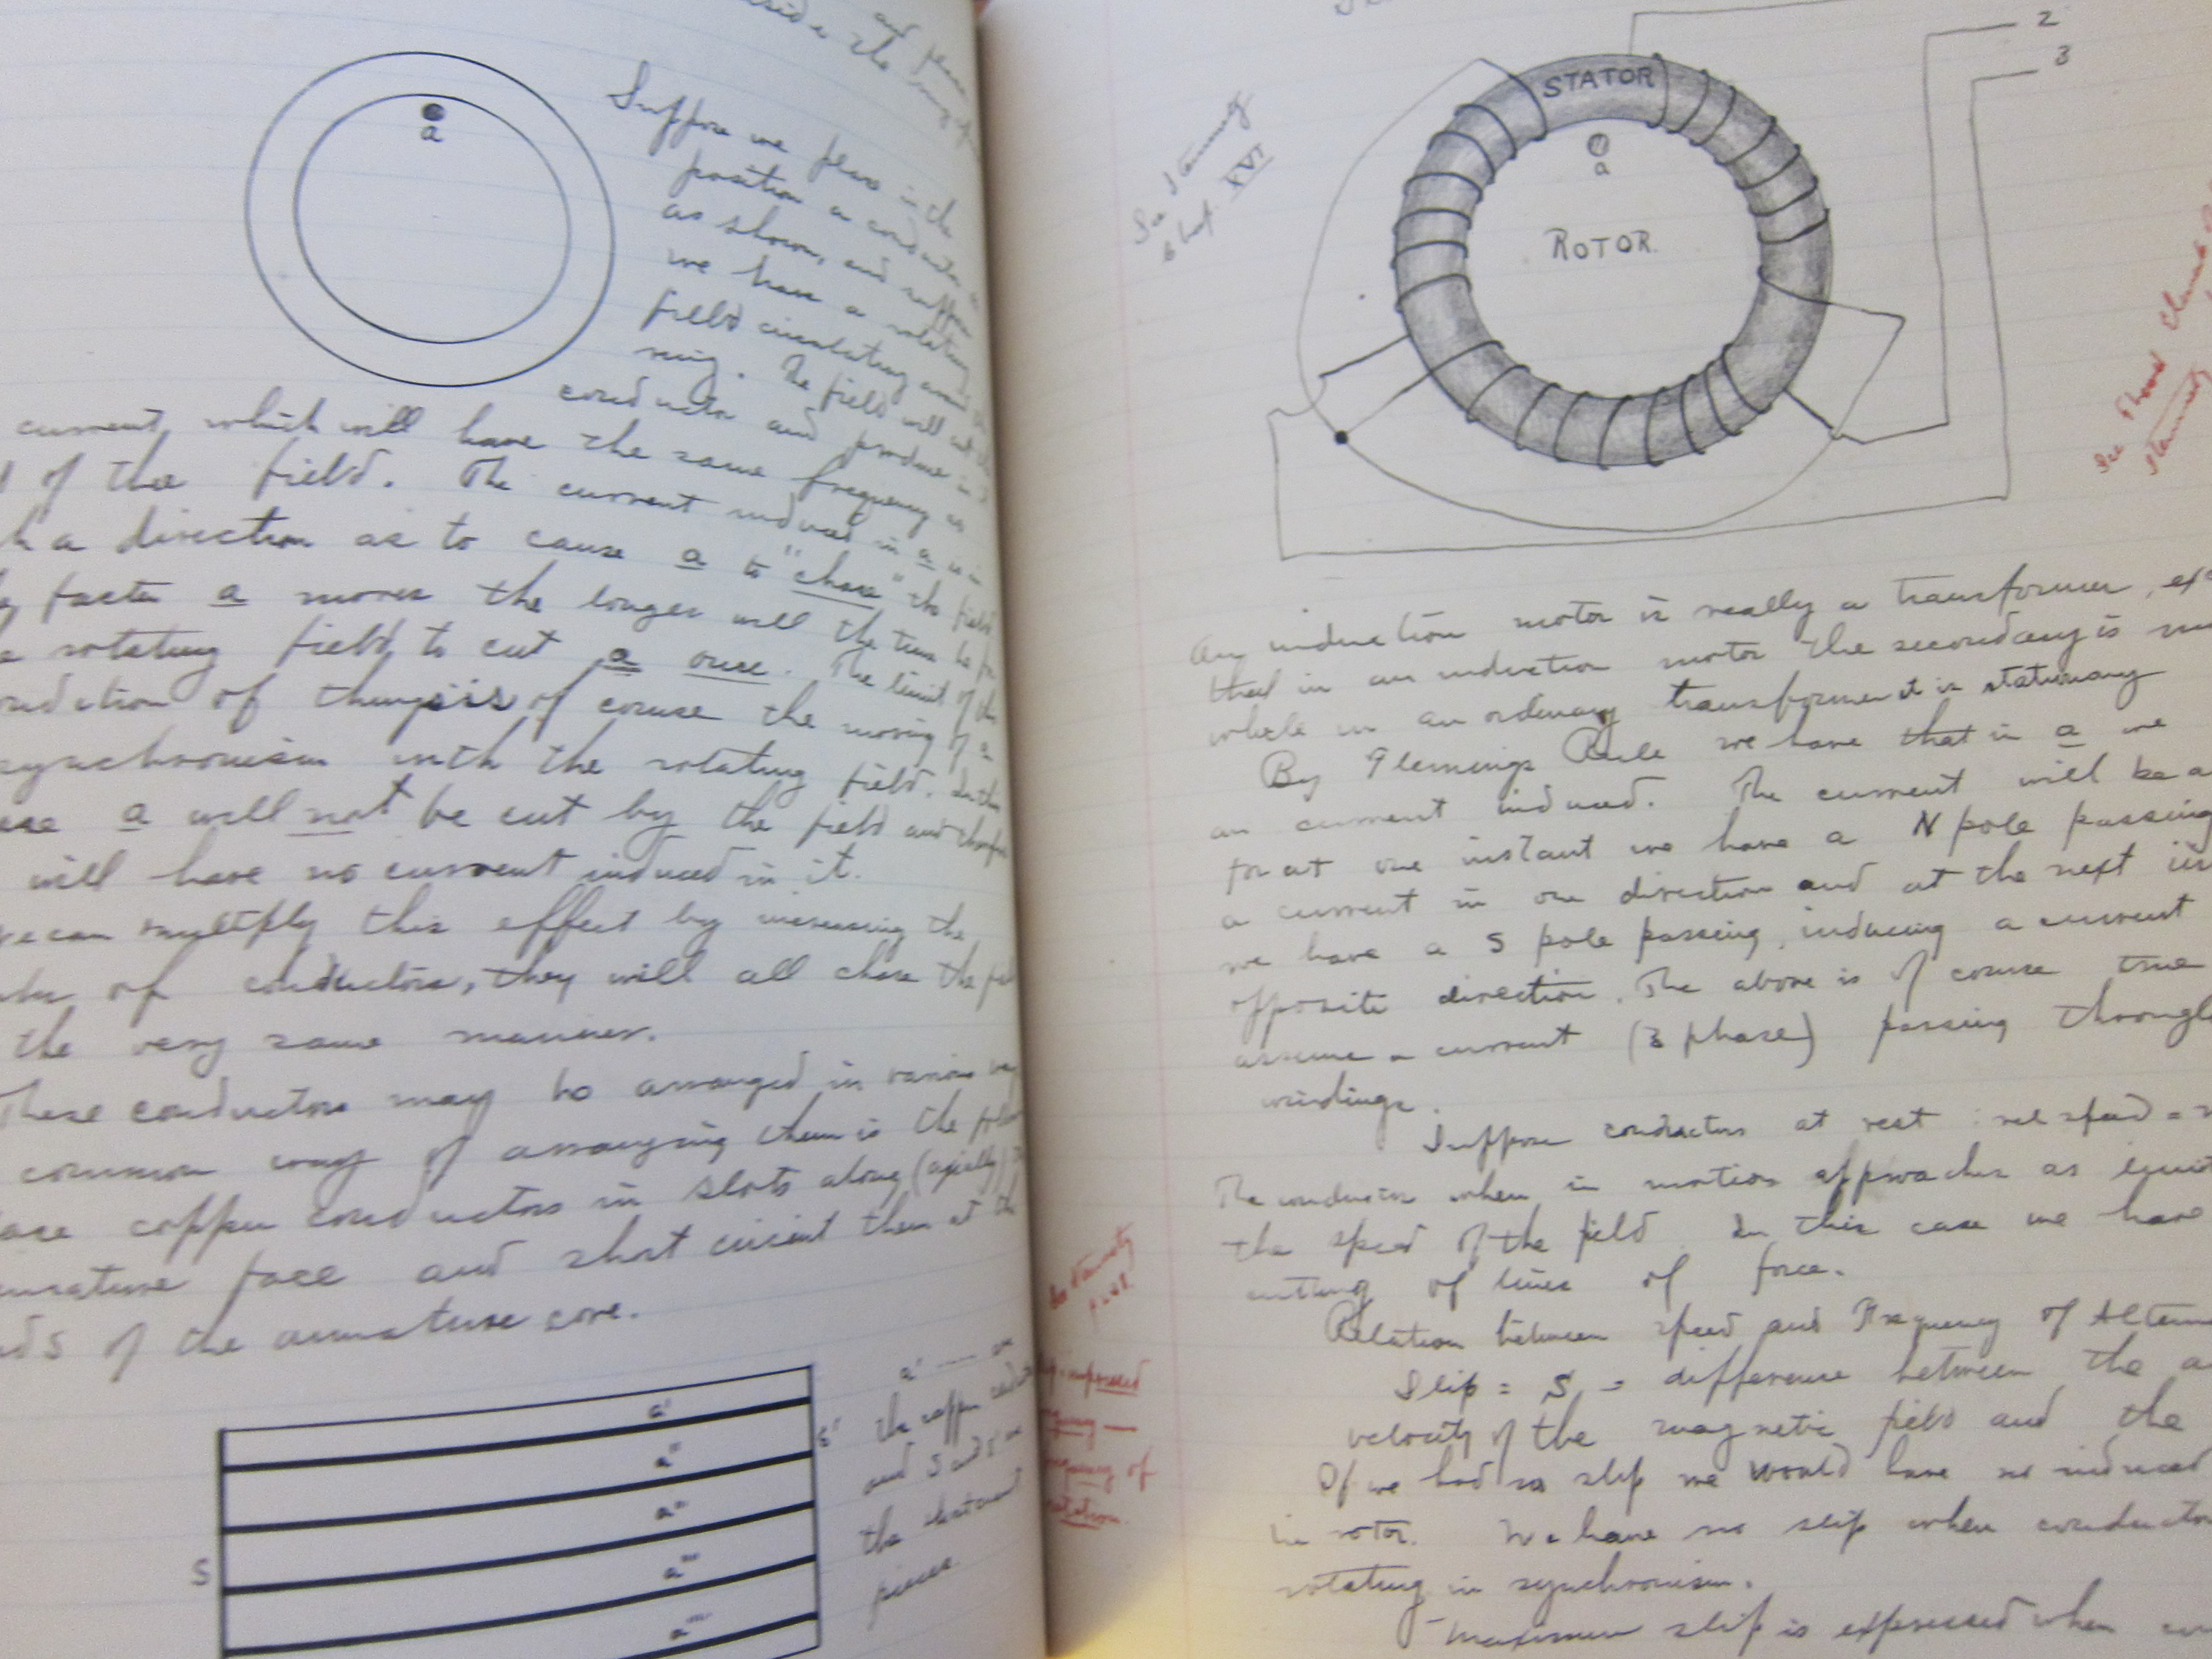 and
side the
a
Suppose we place in the
position a conductor
as shown, and suppose
we have a rotating
field circulating around
ring. The field will cut the
conductor and produce in
current, which will have the same frequency as
of the field. The current induced in a is in
a direction as to cause a to "chase" the field
faster a moves the longer will the time be for
rotating field to cut a once. The limit of the
condition of things is of course the moving of a
synchronism with the rotating field. In this
case a will not be cut by the field and therefore
will have no current induced in it.
we can multiply this effect by increasing the
of conductors, they will all chase the
the very same manner.
These conductors may be arranged in various
common way of arranging them is the
copper conductors in slots along (axially)
armature face and short circuit them at the
ends of the armature core.
a'
a"
a'''
a''''
a'''''
S
S'
a' ---- are
the copper
and S and S' are
the short circuit
pieces.
2
3
STATOR
a
ROTOR.
See Stanley
Chap. XVI
See
Stanley
An induction motor is really a transformer,
that in an induction motor the secondary is
while in an ordinary transformer it is stationary
By Flemings Rule we have that in a we
an current induced. The current will be a
for at one instant we have a N pole passing
a current in one direction and at the next
we have a S pole passing, inducing a current
opposite direction. The above is of course true
assume a current (3 phase) passing through
windings.
Suppose conductors at rest : rel speed =
The conductor when in motion approaches as
the speed of the field. In this case we have
cutting of lines of force.
Relation between speed and Frequency of
Slip = S = difference between the
velocity of the magnetic field and the
If we had no slip we would have no induced
in rotor. We have no slip when conductor
rotating in synchronism.
Maximum slip is expressed when
impressed
of
rotation.